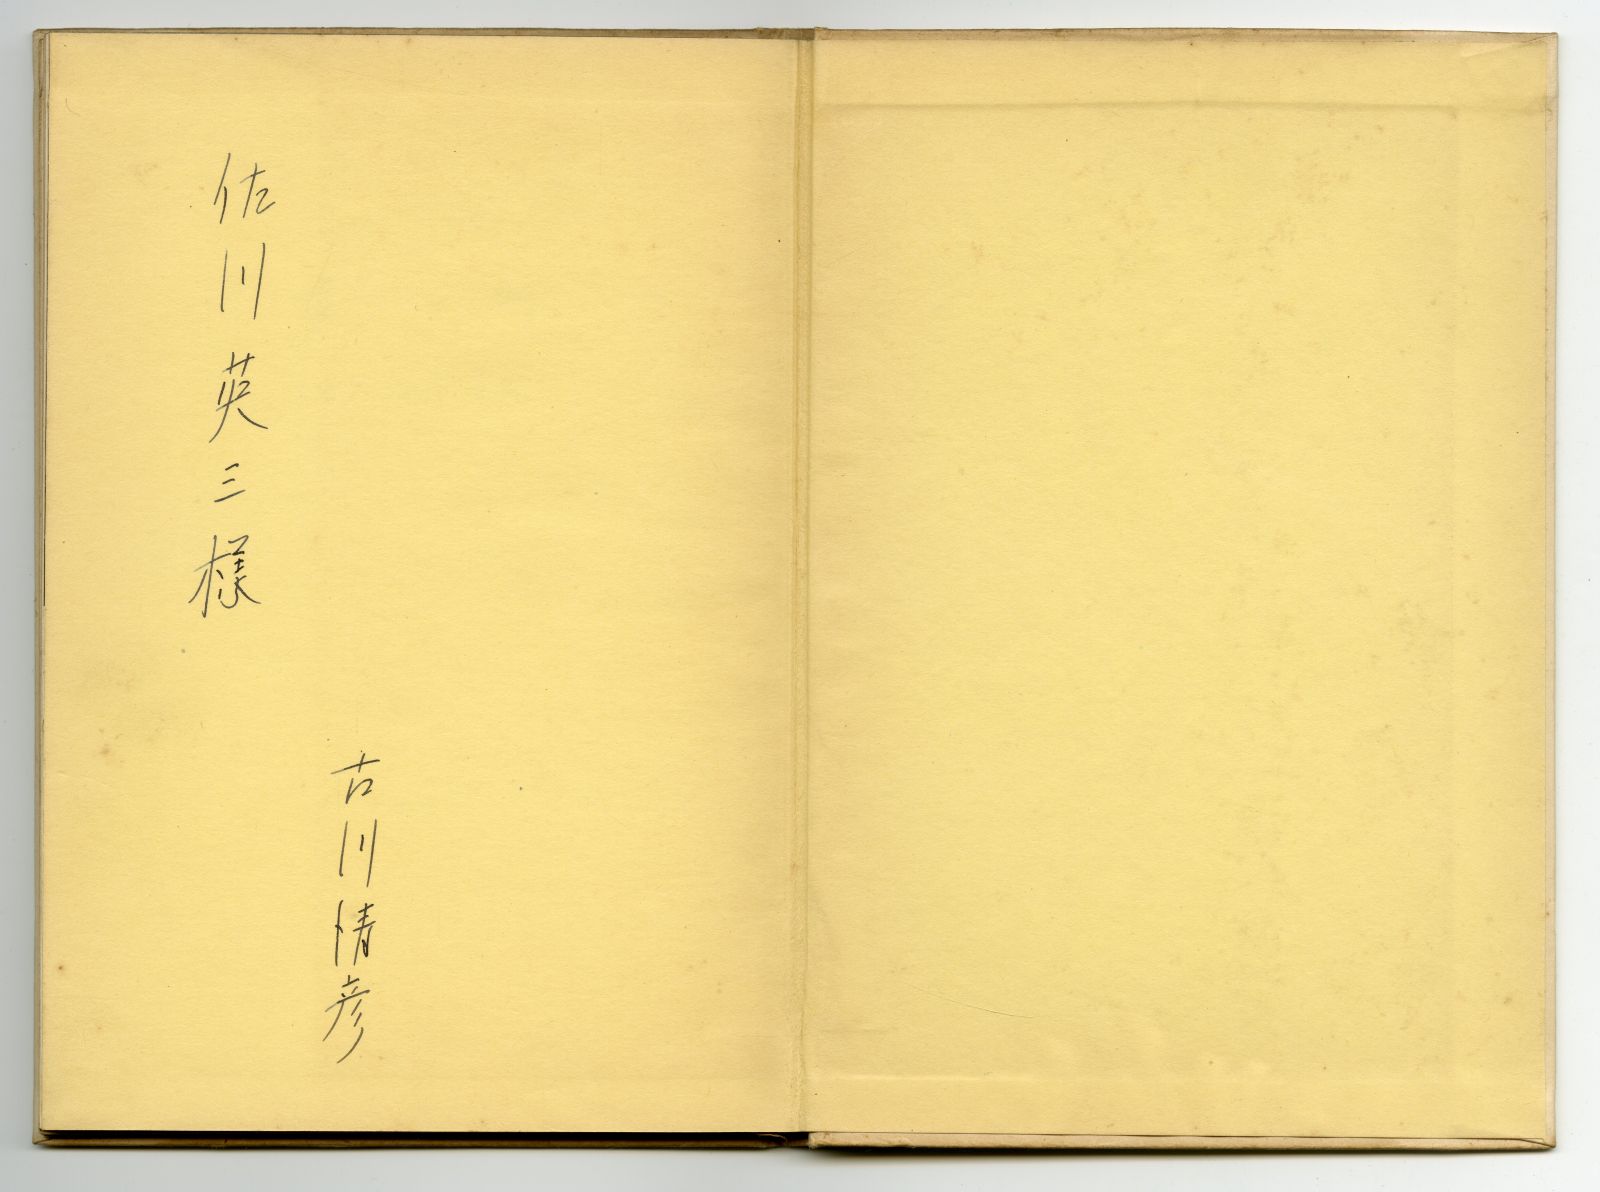 古川清彦
佐川英三様